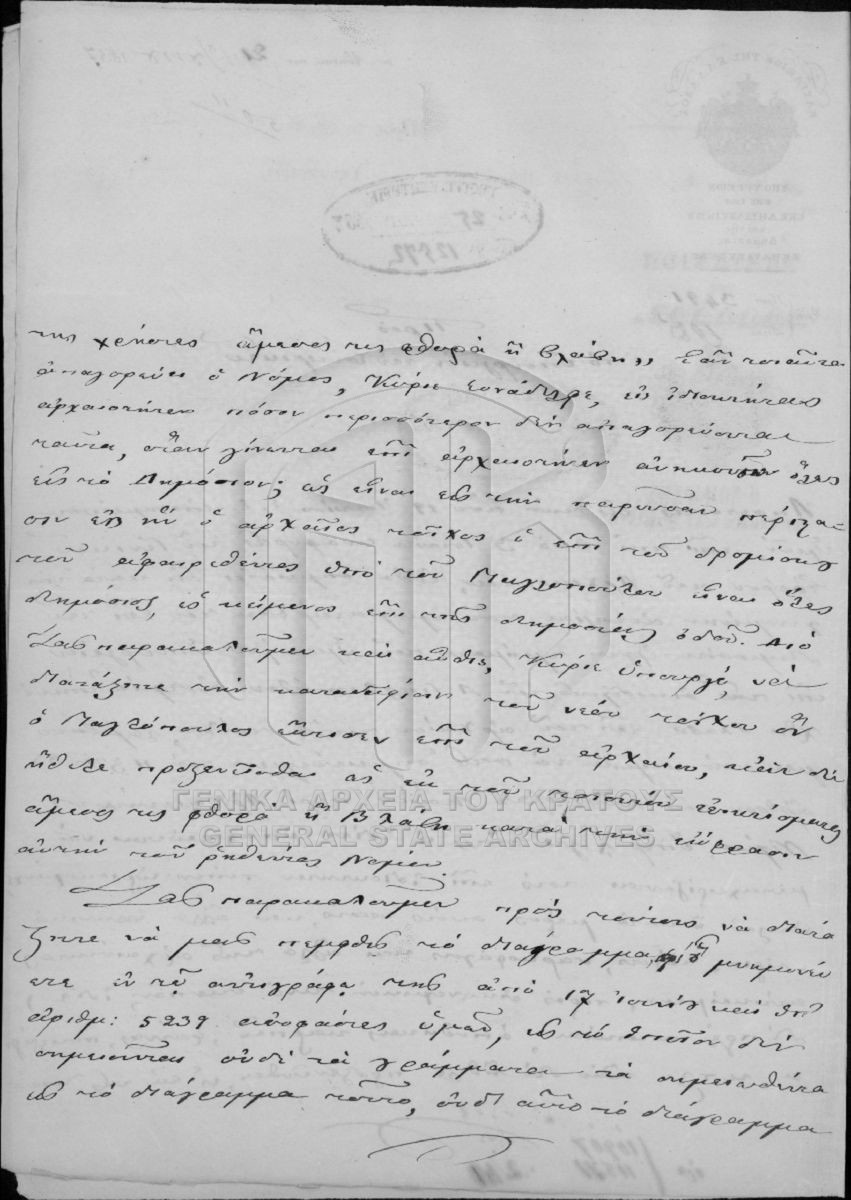 της χρήσεως ἄμεσος τις φθορὰ ἢ βλάβη,, Ἐὰν τοιαῦτα
ἀπαγορεύει ὁ Νόμος, Κύριε Συνάδελφε, εἰς ἰδιοκτήτας
ἀρχαιοτήτων πόσον περισσότερον δὲν ἀπαγορεύονται
ταῦτα, ὅταν γίνωνται ἐπὶ ἀρχαιοτήτων ἀνηκουσῶν ὅλως
εἰς τὸ Δημόσιον; ὡς εἶναι εἰς τὴν παροῦσαν περίστα-
σιν ἐφ' ᾗ ὁ ἀρχαῖος τοῖχος ὁ ἐπὶ τοῦ δρομίσκου
τοῦ ἀφαιρεθέντος ὑπὸ τοῦ Μαλτοπούλου εἶναι ὅλως
δημόσιος, ὡς κείμενος ἐπὶ τῆς δημοσίας ὁδοῦ. Διὸ
Σᾶς παρακαλοῦμεν καὶ αὖθις, Κύριε Ὑπουργέ, νὰ
διατάξητε τὴν κατεδάφισιν τοῦ νέου τοίχου ὃν
ὁ Μαλτόπουλος ἔκτισεν ἐπὶ τοῦ ἀρχαίου,
ἤθελε προξενηθῆ ὡς ἐκ τοῦ τοιούτου
ἄμεσος τις φθορὰ ἢ βλάβη κατὰ τὴν ἔκφρασιν
αὐτὴν τοῦ ῥηθέντος Νόμου.
Σᾶς παρακαλοῦμεν πρὸς τούτοις νὰ διατά
ξητε νὰ μᾶς πεμφθῇ τὸ διάγραμμα, μνημονεύ
ετε ἐν τῷ ἀντιγράφῳ τῆς ἀπὸ 17 Ἰουνίου καὶ ὑπ'
ἀριθμ: 5239 ἀποφάσεως ὑμῶν, εἰς τὸ ὁποῖον δὲν
σημειοῦνται οὐδὲ τὰ γράμματα τὰ σημειωθέντα
εἰς τὸ διάγραμμα τοῦτο, οὐδὲ αὐτὸ τὸ διάγραμμα
ΓΕΝΙΚΑ ΑΡΧΕΙΑ ΤΟΥ ΚΡΑΤΟΥΣ
GENERAL STATE ARCHIVES